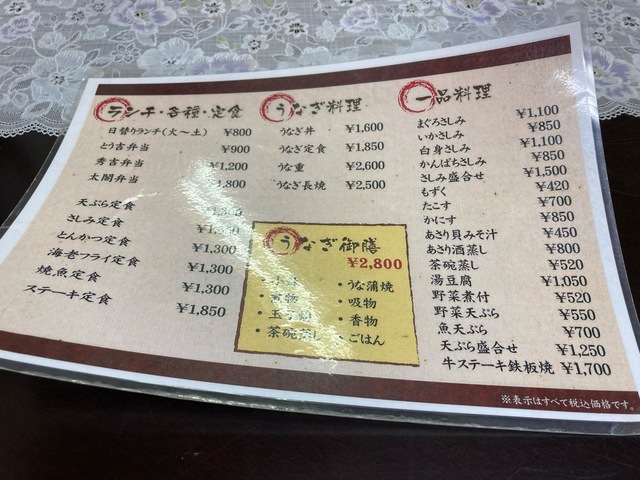 ランチ・各種・定食
日替りランチ(火〜土) ¥800
とり吉弁当 ¥900
秀吉弁当 ¥1,200
太閤弁当 ¥1,800
天ぷら定食
さしみ定食
とんかつ定食 ¥1,300
海老フライ定食 ¥1,300
焼魚定食 ¥1,300
ステーキ定食 ¥1,850
うなぎ料理
うなぎ丼 ¥1,600
うなぎ定食 ¥1,850
うな重 ¥2,600
うなぎ長焼 ¥2,500
うなぎ御膳
¥2,800
・茶碗蒸し
・うな蒲焼
・吸物
・香物
・ごはん
一品料理
まぐろさしみ ¥1,100
いかさしみ ¥850
白身さしみ ¥1,100
かんぱちさしみ ¥850
さしみ盛合せ ¥1,500
もずく ¥420
たこす ¥700
かにす ¥850
あさり貝みそ汁 ¥450
あさり酒蒸し ¥800
茶碗蒸し ¥520
湯豆腐 ¥1,050
野菜煮付 ¥520
野菜天ぷら ¥550
魚天ぷら ¥700
天ぷら盛合せ ¥1,250
牛ステーキ鉄板焼 ¥1,700
※表示はすべて税込価格です。